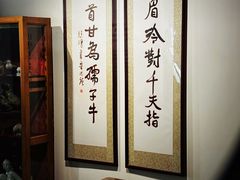 眉冷對千夫指
首甘為孺子牛